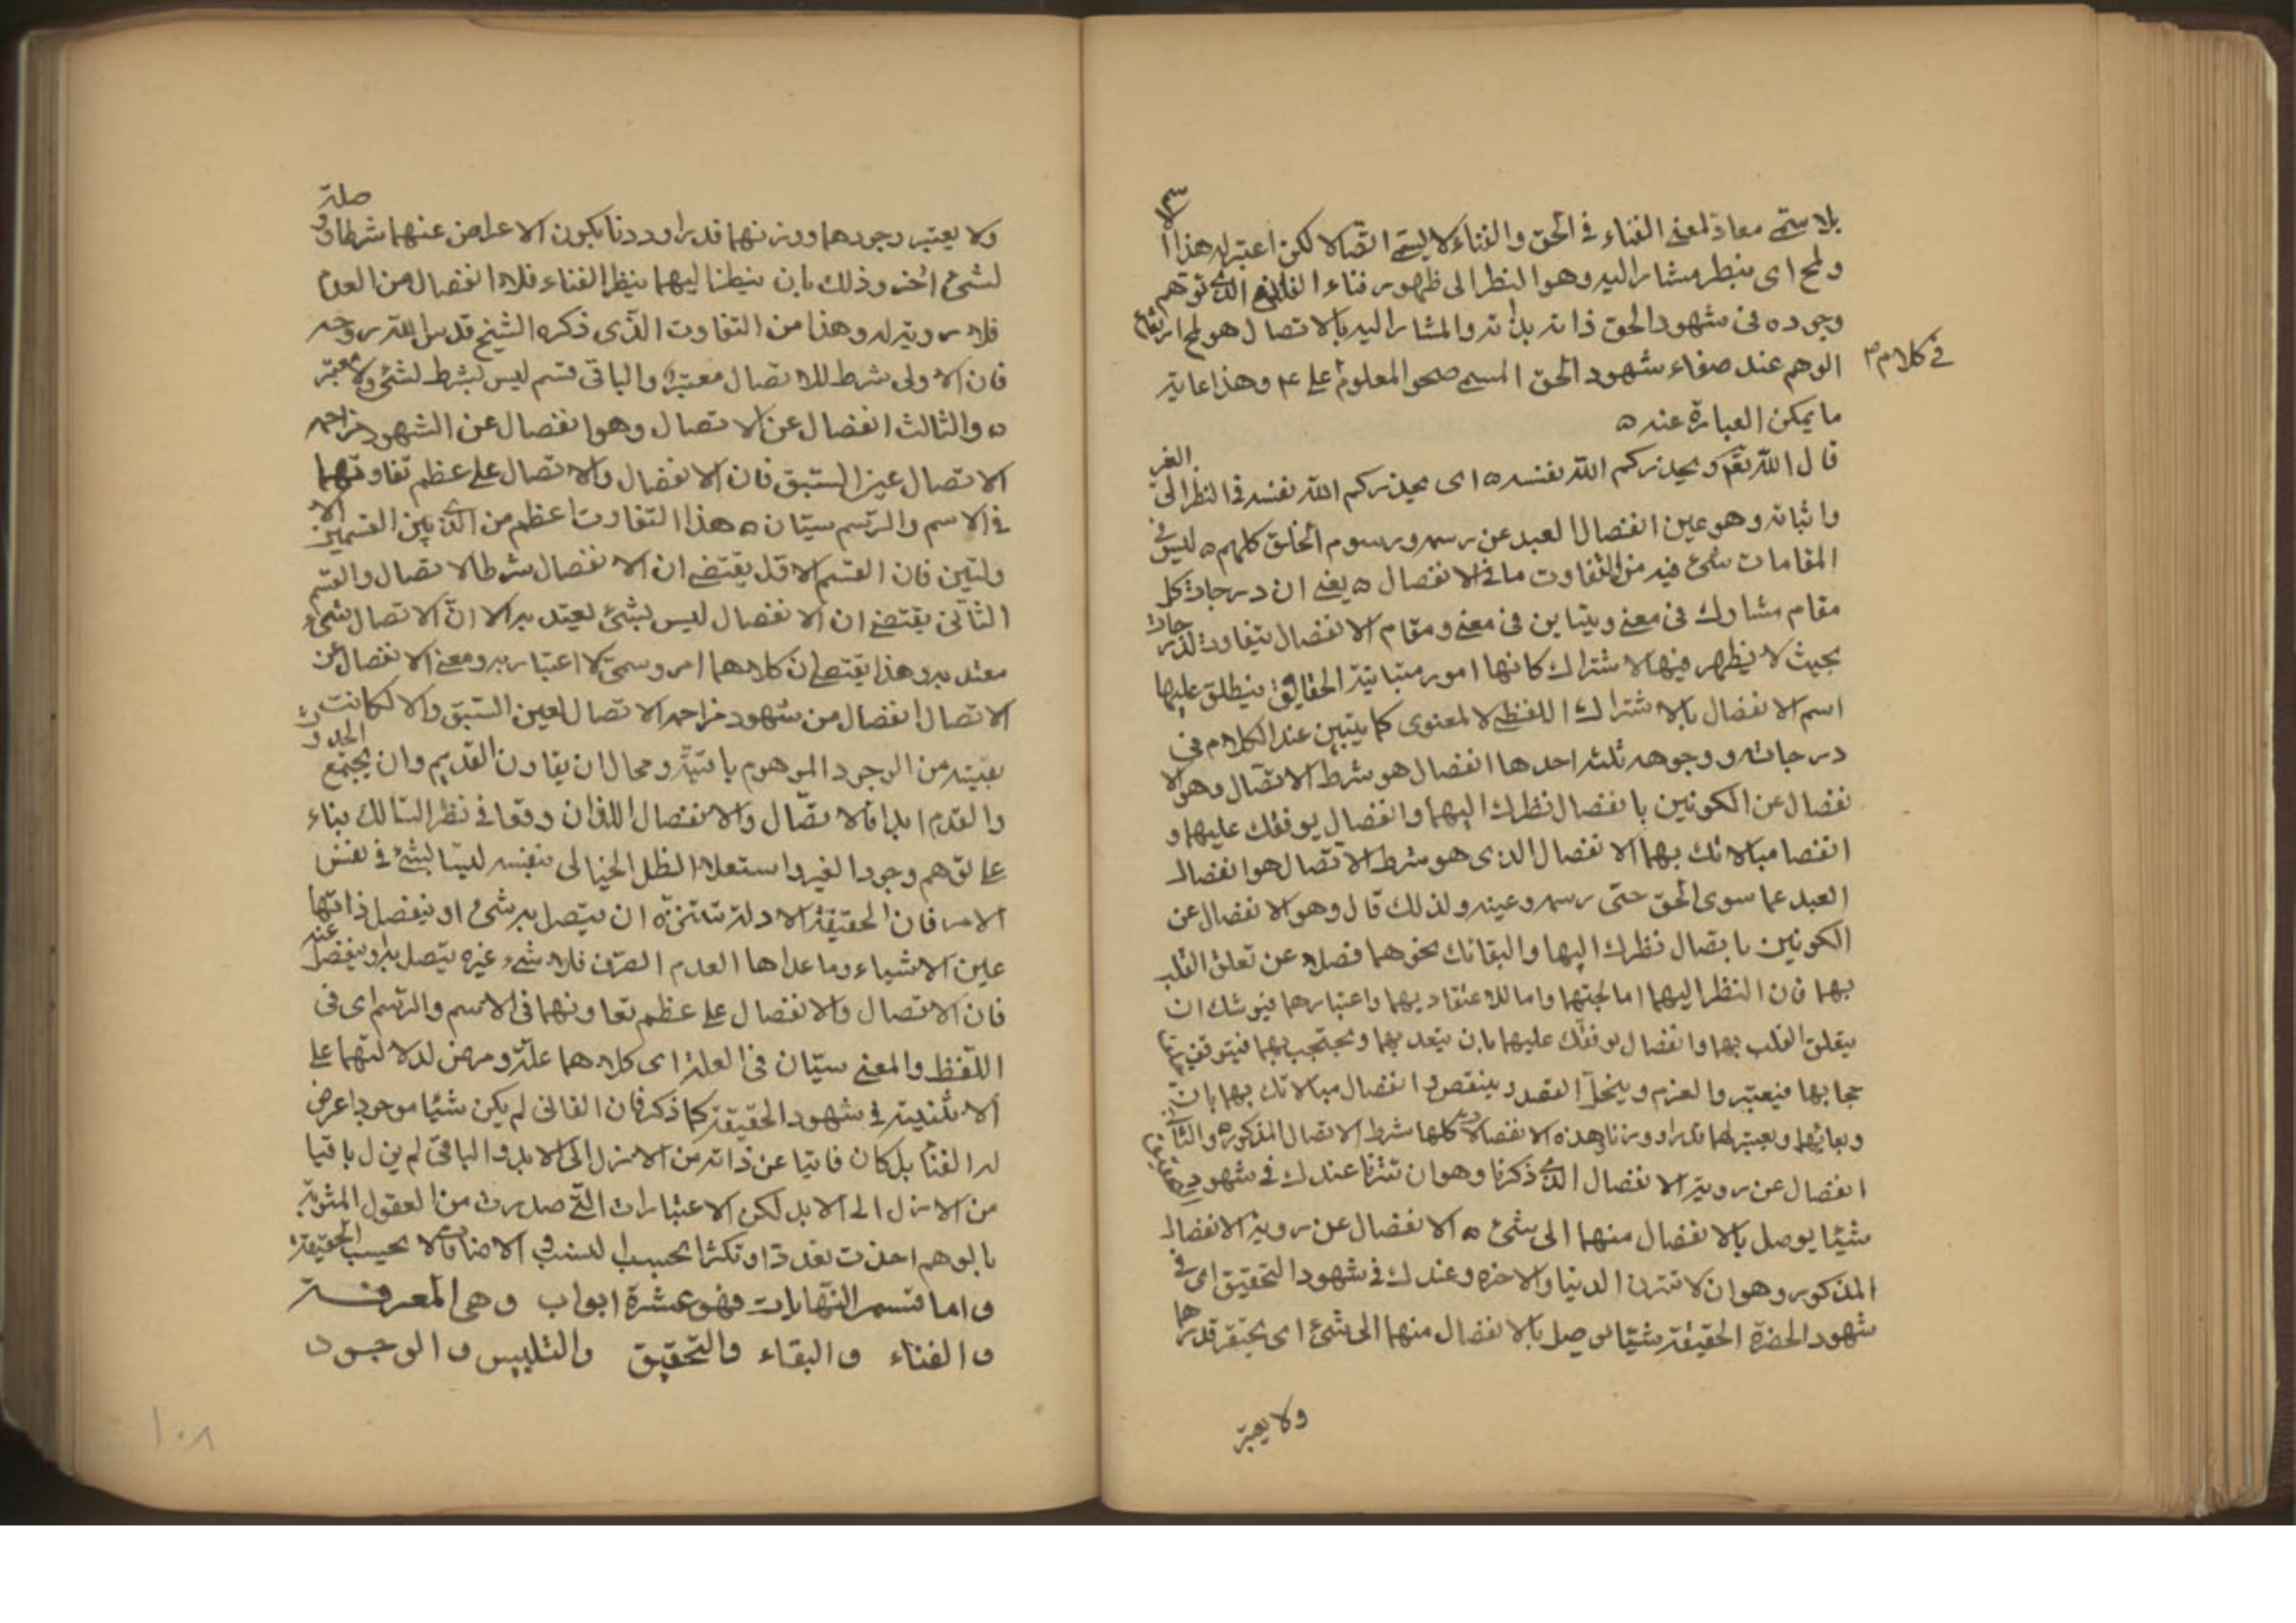 بلا ستمى معادة لمعنى الفناء في الحق والفناء لا ليسمى اتصالا لكن اعتبر له هذا الا
ولمح اى بنظر مشار اليه وهو النظر الى ظهور فناء الفانى الذى توهم
وجوده فى شهود الحق ذاته بذاته والمشار اليه بالاتصال هو لمح ارتفاع
الوهم عند صفاء شهود الحق المسمى صحو المعلوم فى كلام على ع م وهذا غاية
ما يمكن العبارة عنه ه
قال الله تعالى ويحذركم الله نفسه ه اى يحذركم الله نفسه فى النظر الى الغير
واثباته وهو عين انفصال العبد عن رسمه ورسوم الخلق كلهم ه ليس فى
المقامات شئ فيه من التفاوت ما فى الانفصال ه يعنى ان درجات كل
مقام مشارك فى معنى ويتباين فى معنى ومقام الانفصال يتفاوت درجات
بحيث لا يظهر فيها الاشتراك كانها امور متباينة الحقائق ينطلق عليها
اسم الانفصال بالاشتراك اللفظى لا لمعنوى كما يتبين عند الكلام فى
درجاته ووجوهه ثلثه احدها انفصال هو شرط الاتصال وهو الا
نفصال عن الكونين بانفصال نظرك اليهما وانفصال يوقفك عليهما و
انفصا مبالاتك بهما الانفصال الذى هو شرط الاتصال هو انفصال
العبد عما سوى الحق حتى رسمه وعينه ولذلك قال وهو الانفصال عن
الكونين بانفصال نظرك اليها والتفاتك نحوهما فضلا عن تعلق القلب
بهما فان النظر اليهما اما لمحبتهما واما للاعتقاد بهما واعتبارهما فيوشك ان
يتعلق القلب بهما وانفصال توقفك عليهما بان يتعد بهما ويحتجب بهما فيتوقف
حجابها فيعتبر والعزم وينحل القصد وينقص وانفصال مبالاتك بهما بان
وبعائهما ويعتبر لهما قدرا ووزنا وهذه الانفصالات كلها شرط الاتصال المذكوره والثانى
انفصال عن رويته الانفصال الذى ذكرنا وهو ان تتزنا عندك فى شهود التحقيق
شيئا يوصل بالانفصال منهما الى شئ ه الانفصال عن روية الانفصال
المذكور وهو ان لا تتزن الدنيا والاخره وعندك فى شهود التحقيق اى فى
شهود الحضرة الحقيقة شيئا يوصل بالانفصال منهما الى شئ اى يحتقر قدرها
ولا يعتبر
ولا يعتبر وجودهما ووزنهما قدرا ووزنا بكون الاعراض عنهما شرطا ووصلة
لشئ اخر وذلك بان ينظرنا اليهما بنظر الفناء فلا انفصال من العدم
فلا روية له وهذا من التفاوت الذى ذكره الشيخ قدس الله روحه
فان الاولى شرط للاتصال معتبرة والباقى قسم ليس بشرط لشئ ولا معتبر
ه والثالث انفصال عن الاتصال وهو انفصال عن الشهود مزاحمه
الاتصال عين السبق فان الانفصال والاتصال على عظم تفاوتهما
فى الاسم والرسم سيان ه هذا التفاوت اعظم من الذى بين القسمين الا
ولتين فان القسم الاول يقتضى ان الانفصال شرط الاتصال والقسم
الثانى يقتضى ان الانفصال ليس بشئ يعتد به الا ان الاتصال شئ
معتد به وهذا يقتضى ان كلاهما امر وسمى لا اعتبار به ومعنى الانفصال عن
الاتصال انفصال من شهود مزاحمه الاتصال لعين السبق والا لكانت
بقيته من الوجود الموهوم باقية ومحال ان يقارن القديم وان يجتمع الحدوث
والقدم ابدا فالاتصال والانفصال اللذان وقعا فى نظر السالك بناء
على توهم وجود الغير واستعلاء الظل الخيالى بنفسه ليسا بشئ فى نفس
الامر فان الحقيقة الازلية تتنزه ان يتصل به شئ او ينفصل ذاتها
عين الاشياء وما عداها العدم الصرف فلا شئ غيره يتصل به وينفصل عنه
فان الاتصال والانفصال على عظم تفاوتهما فى الاسم والرسم اى فى
اللفظ والمعنى سيان فى العلة اى كلاهما علة ومرض لدلالتهما على
الاثنينية فى شهود الحقيقة كما ذكر فان الفانى لم يكن شيئا موجودا عرض
له الفنا بل كان فانيا عن ذاته من الازل الى الابد والباقى لم يزل باقيا
من الازل الى الابد لكن الاعتبارات التى صدرت من العقول المشوبة
بالوهم احدثت تعددا وتكثرا بحسب النسب والاضافات لا بحسب الحقيقة
واما قسم النهايات فهو عشرة ابواب وهى المعرفة
والفناء والبقاء والتحقيق والتلبيس والوجود
١٠٨